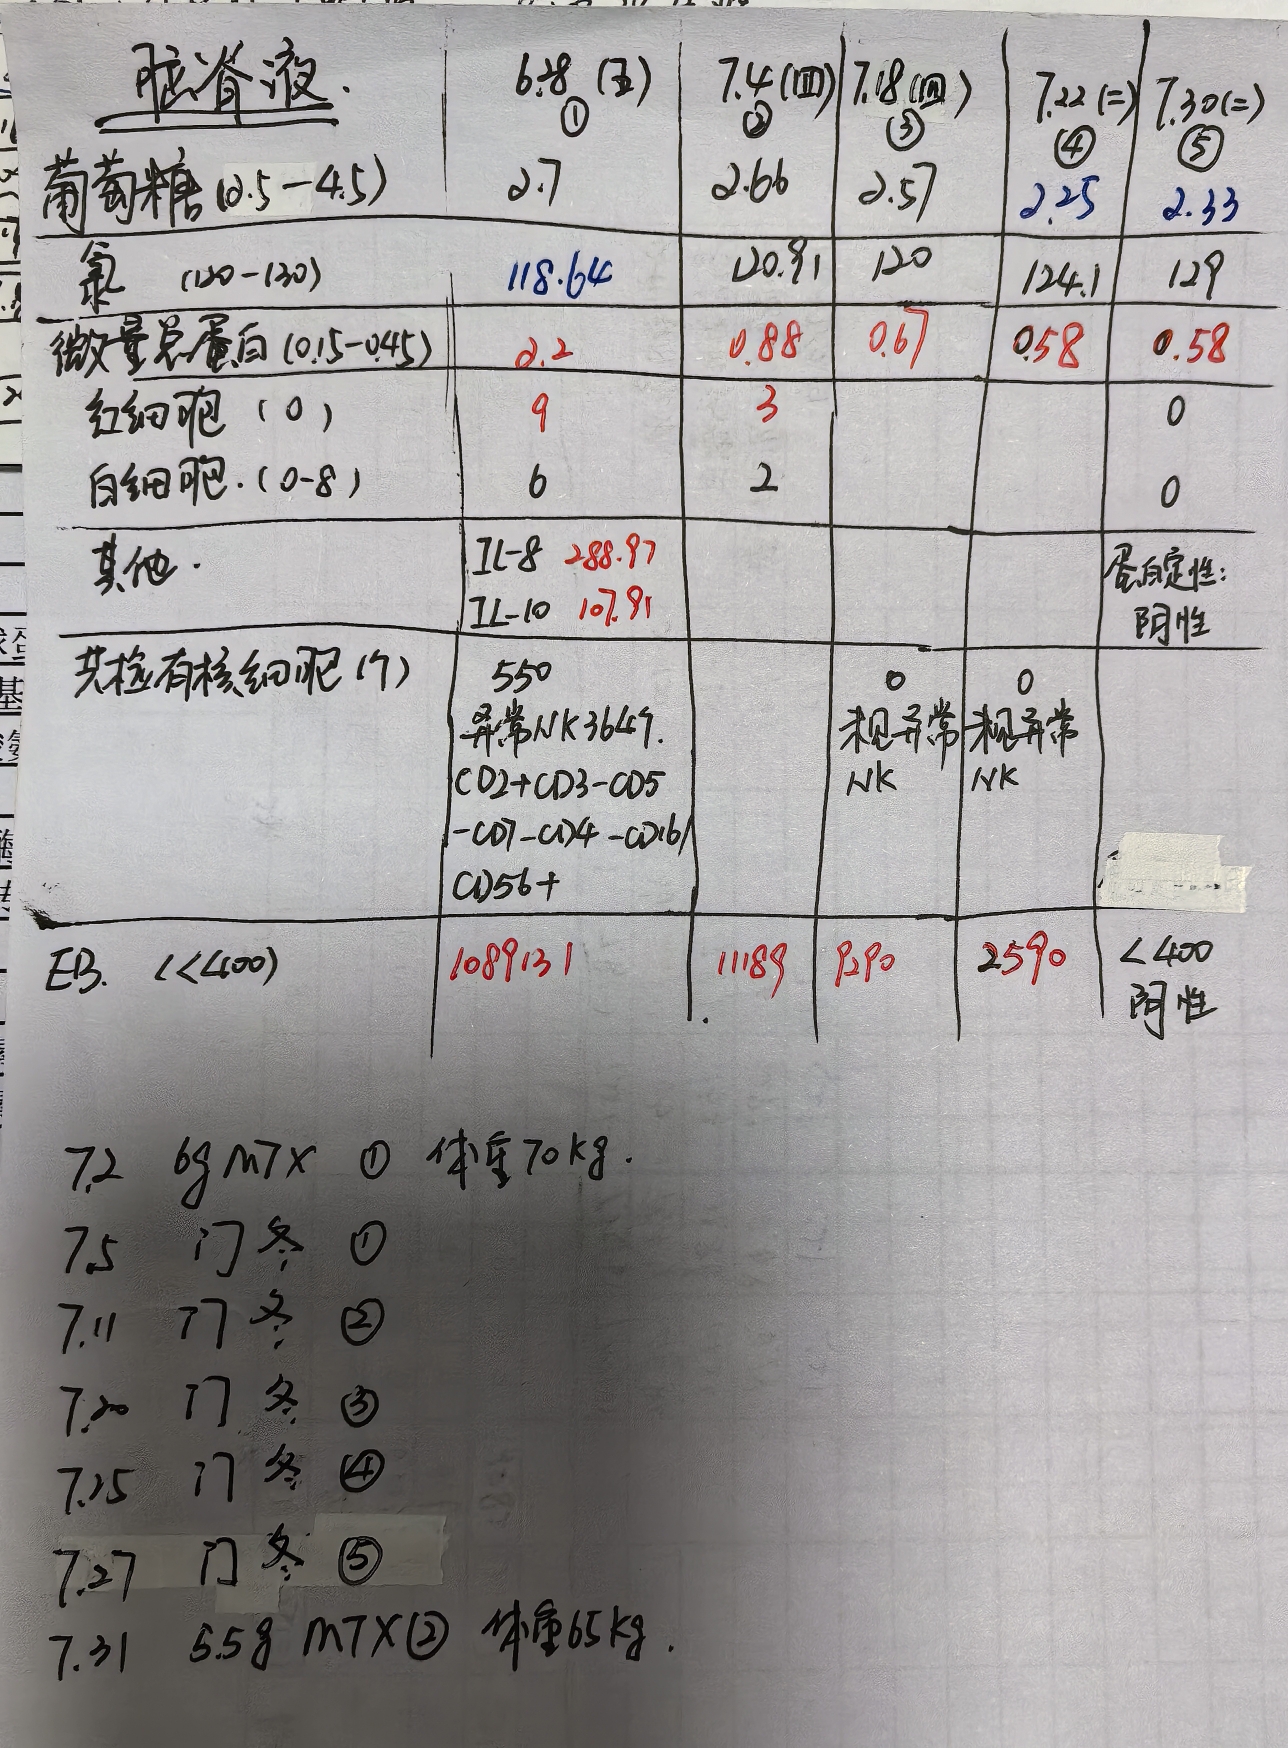 脑脊液. 6.28(五) 7.4(四) 7.18(四) 7.22(二) 7.30(二)
① ② ③ ④ ⑤
葡萄糖(2.5-4.5) 2.7 2.66 2.57 2.25 2.33
氯 (120-130) 118.64 120.91 120 124.1 129
微量总蛋白(0.15-0.45) 2.2 0.88 0.67 0.58 0.58
红细胞(0) 9 3 0
白细胞.(0-8) 6 2 0
其他. IL-8 288.97 蛋白定性:
IL-10 107.91 阴性
共检有核细胞(个) 550 0 0
异常NK364个. 未见异常 未见异常
CD2+CD3-CD5 NK NK
-CD7-CD4-CD16/
CD56+
EB. (<400) 1089131 11189 9290 2590 <400
阴性
7.2 6g MTX ① 体重70kg.
7.5 门冬 ①
7.11 门冬 ②
7.20 门冬 ③
7.25 门冬 ④
7.27 门冬 ⑤
7.31 5.5g MTX② 体重65kg.